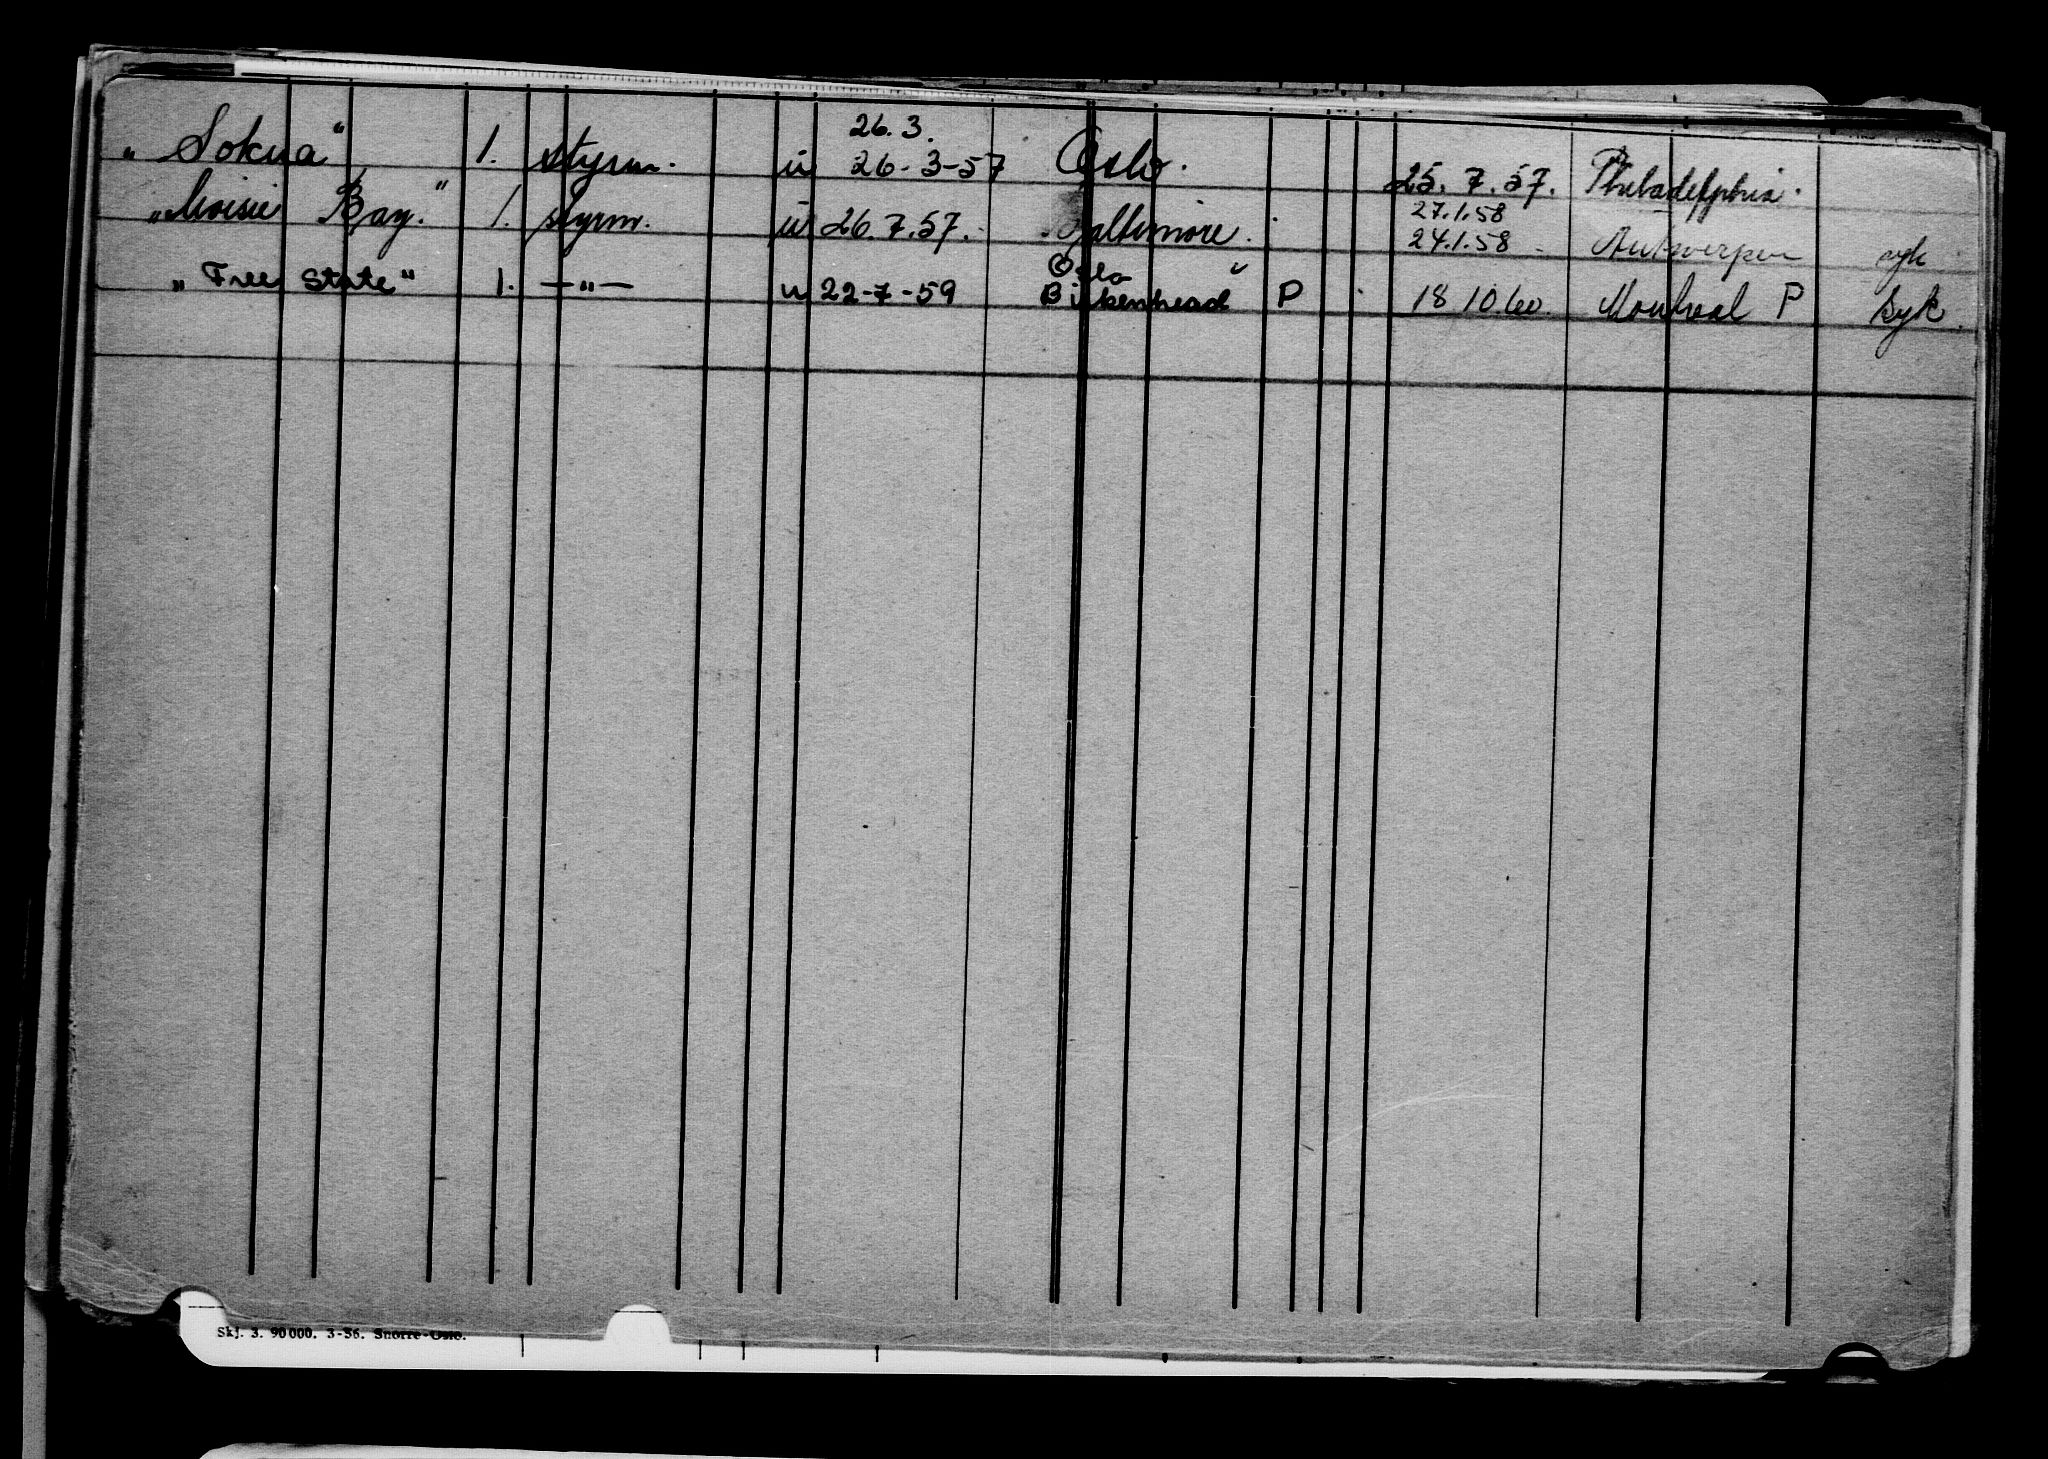 26.3.
„Sokna“ 1. styrm. u 26-3-57 Oslo. 25.7.57. Philadelphia.
27.1.58
„Moisie Bay.“ 1. styrm. u 26.7.57. Baltimore. 24.1.58 - Antwerpen syk
Oslo
„Free State“ 1. —„— u 22-7-59 Birkenhead P 18 10 60. Montreal P syk.
Skj. 3. 90000. 3-56. Snorre-Oslo.